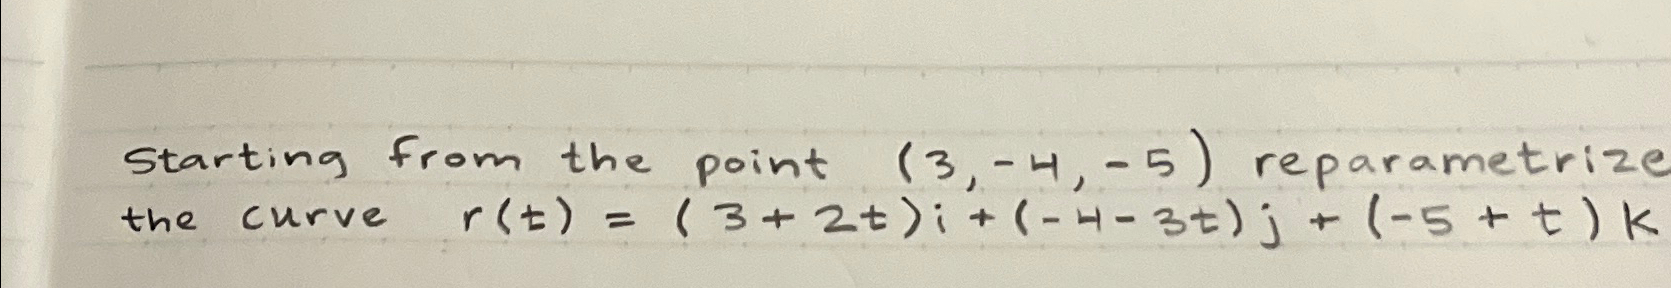 Starting from the point (3,-4,-5) reparametrize
the curve r(t) = (3+2t)i+(-4-3t)j+(-5+t)k